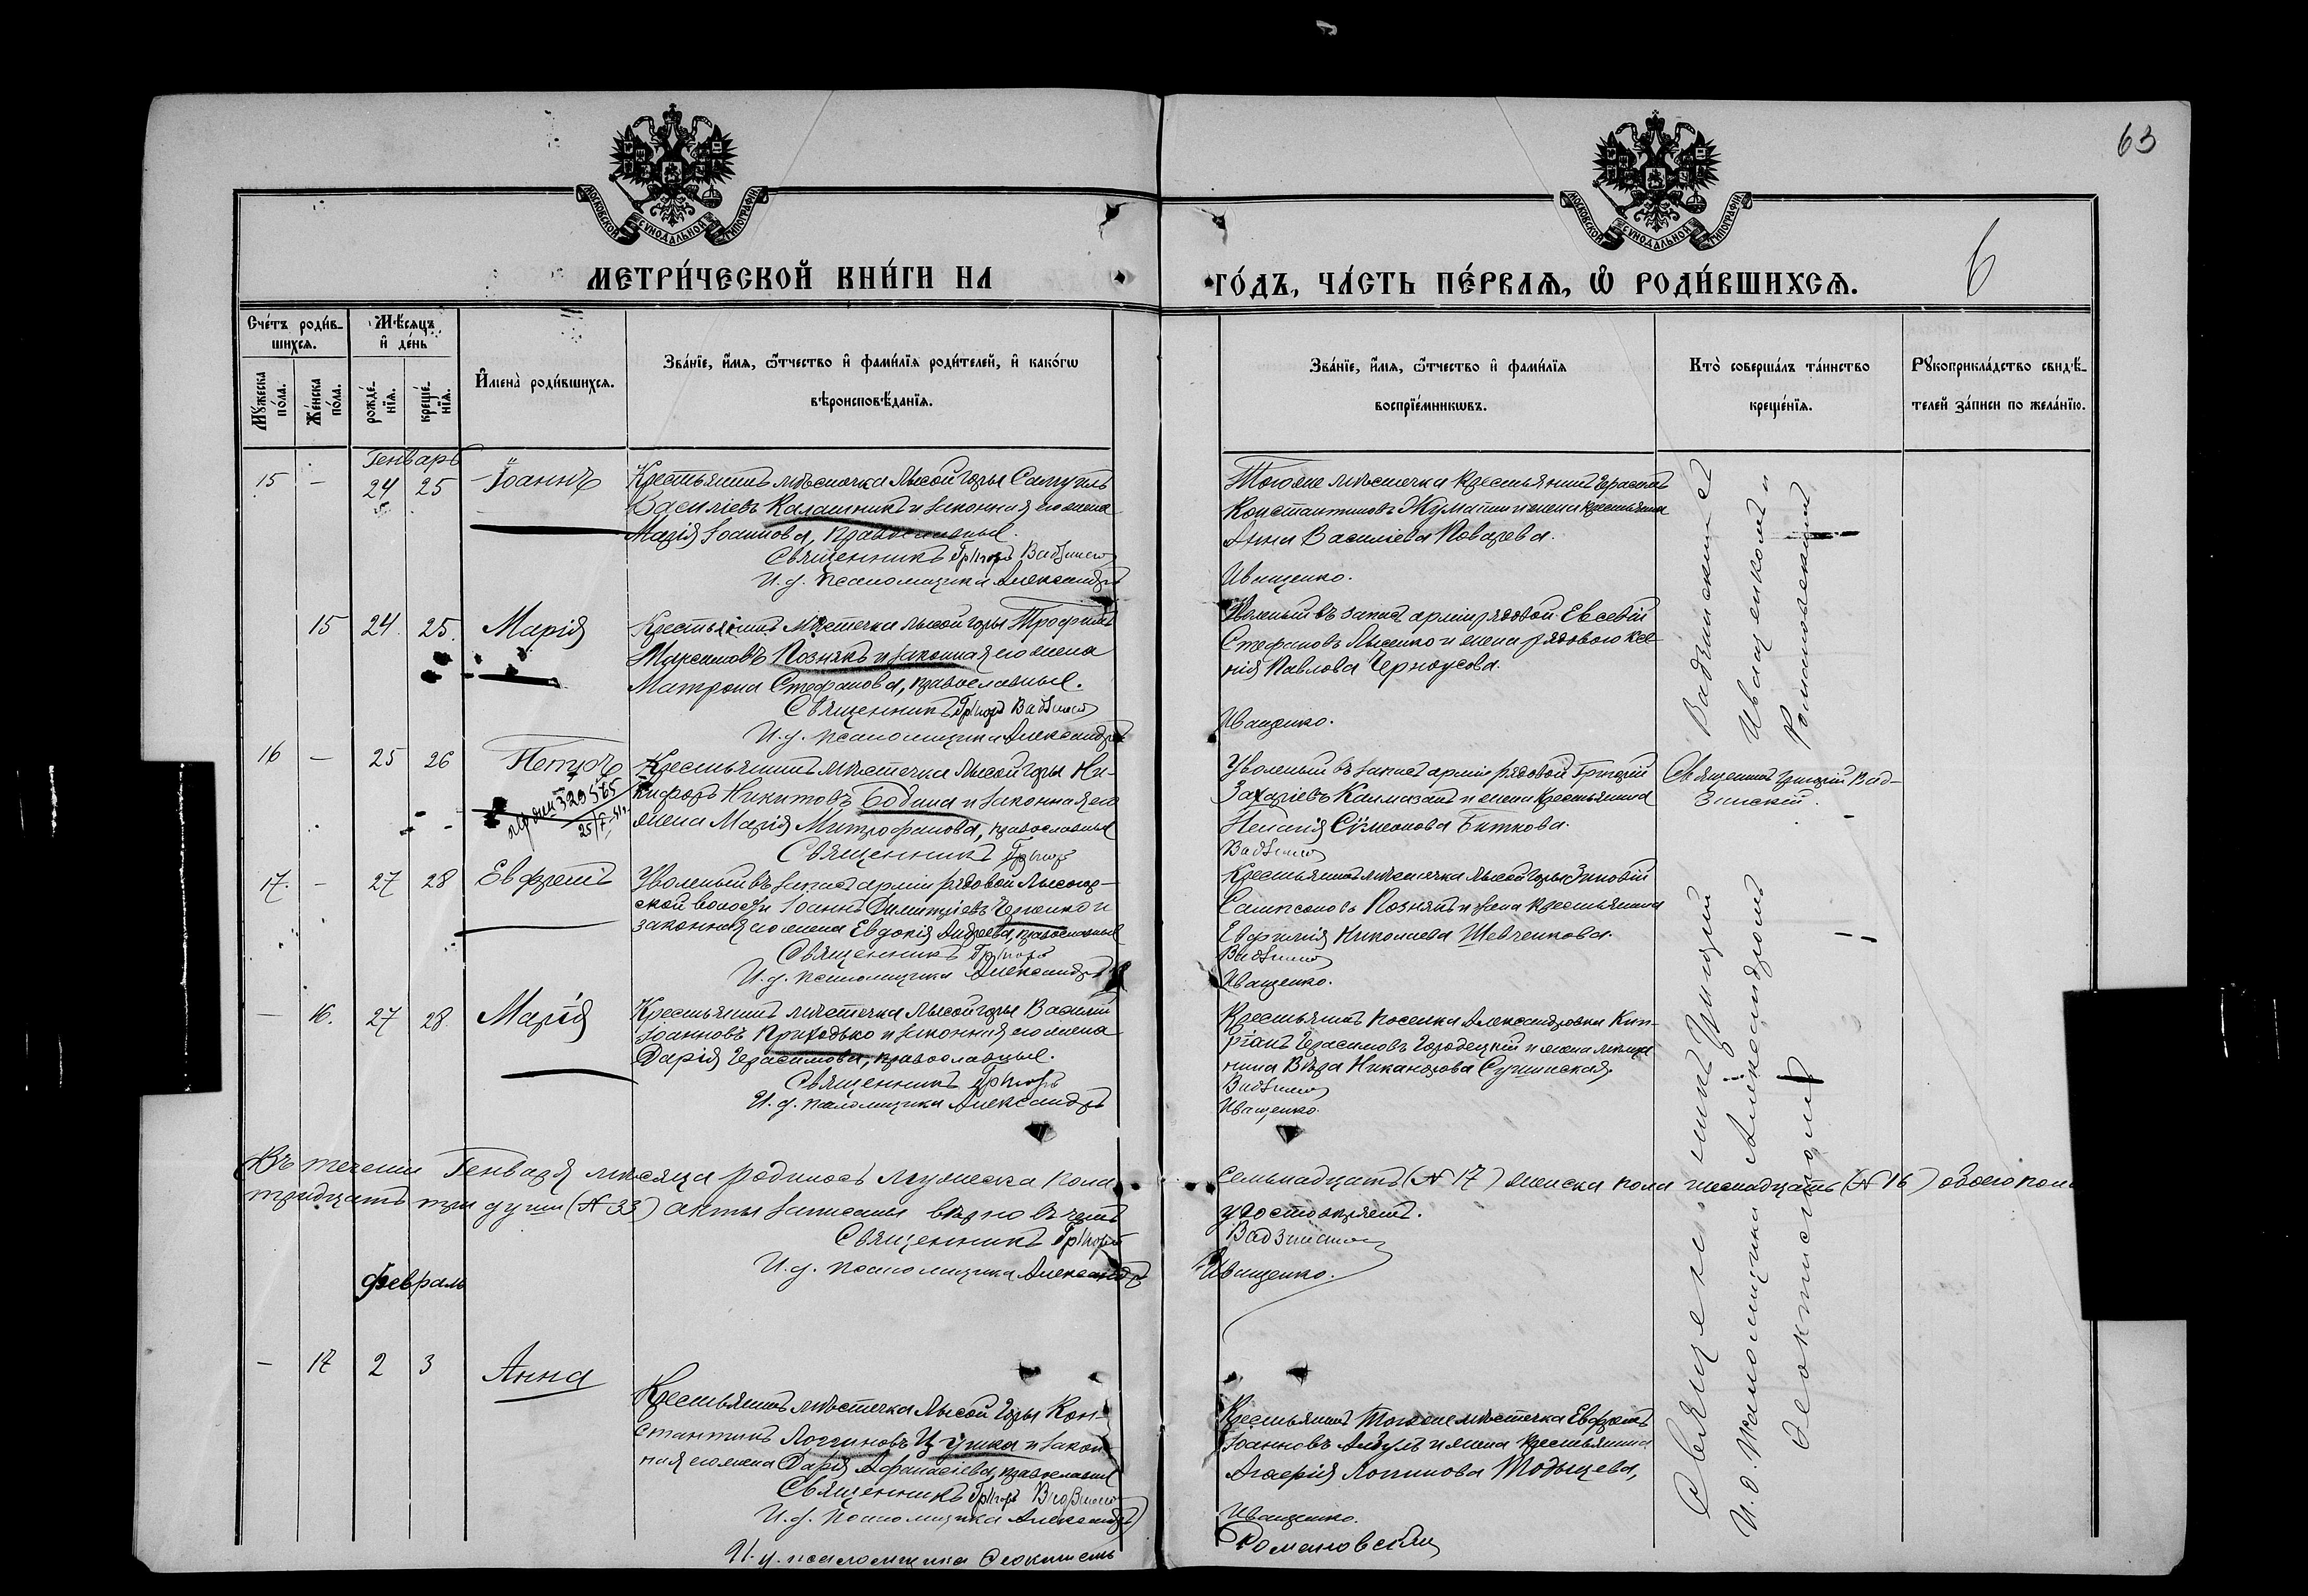 63
МОСКОВСКОЙ СУНОДАЛЬНОЙ ТИПОГРАФІИ
МОСКОВСКОЙ СУНОДАЛЬНОЙ ТИПОГРАФІИ
МЕТРИ́ЧЕСКОЙ КНИ́ГИ НА
ГО́ДЪ, ЧА́СТЬ ПЕ́РВАѦ, Ѡ҆ РОДИ́ВШИХСѦ.
6
Сче́тъ роди́в-
шихсѧ.
Мѣ́сяцъ
и҆ де́нь
Му́жеска
по́ла.
Же́нска
по́ла.
рожде́-
нїѧ.
креще́-
нїѧ.
И҆мена̀ роди́вшихсѧ.
Зва́нїе, и҆́мѧ, ѻ҆́тчество и҆ фами́лїѧ роди́телей, и҆ како́гѡ
вѣроисповѣ́данїѧ.
Зва́нїе, и҆́мѧ, ѻ҆́тчество и҆ фами́лїѧ
воспрїе́мникѡвъ.
Кто̀ соверша́лъ та́инство
креще́нїѧ.
Рꙋкоприкла́дство свидѣ́-
телей за́писи по жела́нїю.
Генварь
15 - 24 25 Іоаннъ
Крестьянинъ мѣстечка Лысой Горы Самуилъ
Василіевъ Калашникъ и законная его жена
Марія Іоаннова, православные.
Священникъ Григорій Вадзинскій
И. д. псаломщика Александръ
Тогоже мѣстечка крестьянинъ Герасимъ
Константиновъ и жена крестьянина
Анна Василіева Поварева.
Иващенко.
15 24 25 Марія
Крестьянинъ мѣстечка Лысой Горы Трофимъ
Максимовъ Познякъ и законная его жена
Матрона Стефанова, православные.
Священникъ Григорій Вадзинскій
И. д. псаломщика Александръ
Уволеный въ запасъ арміи рядовой Евсевій
Стефановъ Лысенко и жена рядового Ксе-
нія Павлова Черноусова.
Иващенко.
16 - 25 26 Петръ
320565
Крестьянинъ мѣстечка Лысой Горы Ни-
кифоръ Никитовъ Бодина и законная его
жена Марія Митрофанова, православные
Священникъ Григорій
Уволеный въ запасъ арміи рядовой Григорій
Захаріевъ и жена крестьянина
Сѵмеонова Биткова.
Вадзинскій
Священникъ Григорій Вад-
зинскій.
17. - 27 28 Евфремъ
Уволеный въ запасъ арміи рядовой Лысогор-
ской волости Іоаннъ Димитріевъ и
законная его жена Евдокія Андреева, православные
Священникъ Григорій
И. д. псаломщика Александръ
Крестьянинъ мѣстечка Лысой Горы Зиновій
Сампсоновъ Познякъ и жена крестьянина
Евфимія Николаева Шевченкова.
Вадзинскій
Иващенко.
- 16. 27 28 Марія
Крестьянинъ мѣстечка Лысой Горы Василій
Іоанновъ Приходько и законная его жена
Дарія Герасимова, православные.
Священникъ Григорій
И. д. псаломщика Александръ
Крестьянинъ поселка Александровки Кип-
ріанъ Герасимовъ Городецкій и жена мѣща-
нина Вѣра Никанорова Сушинская,
Вадзинскій
Иващенко.
Въ теченіи Генваря мѣсяца родилось мужеска пола
семьнадцать (№ 17) женска пола шеснадцать (№ 16) обоего пола
тридцать три души (№ 33) акты записаны вѣрно въ чемъ
удостовѣряемъ.
Священникъ Григорій
Вадзинскій
И. д. псаломщика Александръ
Иващенко.
Февраль
- 17 2 3 Анна
Крестьянинъ мѣстечка Лысой Горы Кон-
стантинъ Логгиновъ и закон-
ная его жена Дарія Афанасіева, православные
Священникъ Григорій Вадзинскій
И. д. псаломщика Александръ
И. д. псаломщика Феоктистъ
Крестьянинъ тогоже мѣстечка Евфремъ
Іоанновъ и жена крестьянина
Иващенко.
Романовскій
Священникъ Григорій Вадзинскій съ
И. д. псаломщика Александромъ Иващенкомъ и
Феоктистомъ Романовскимъ